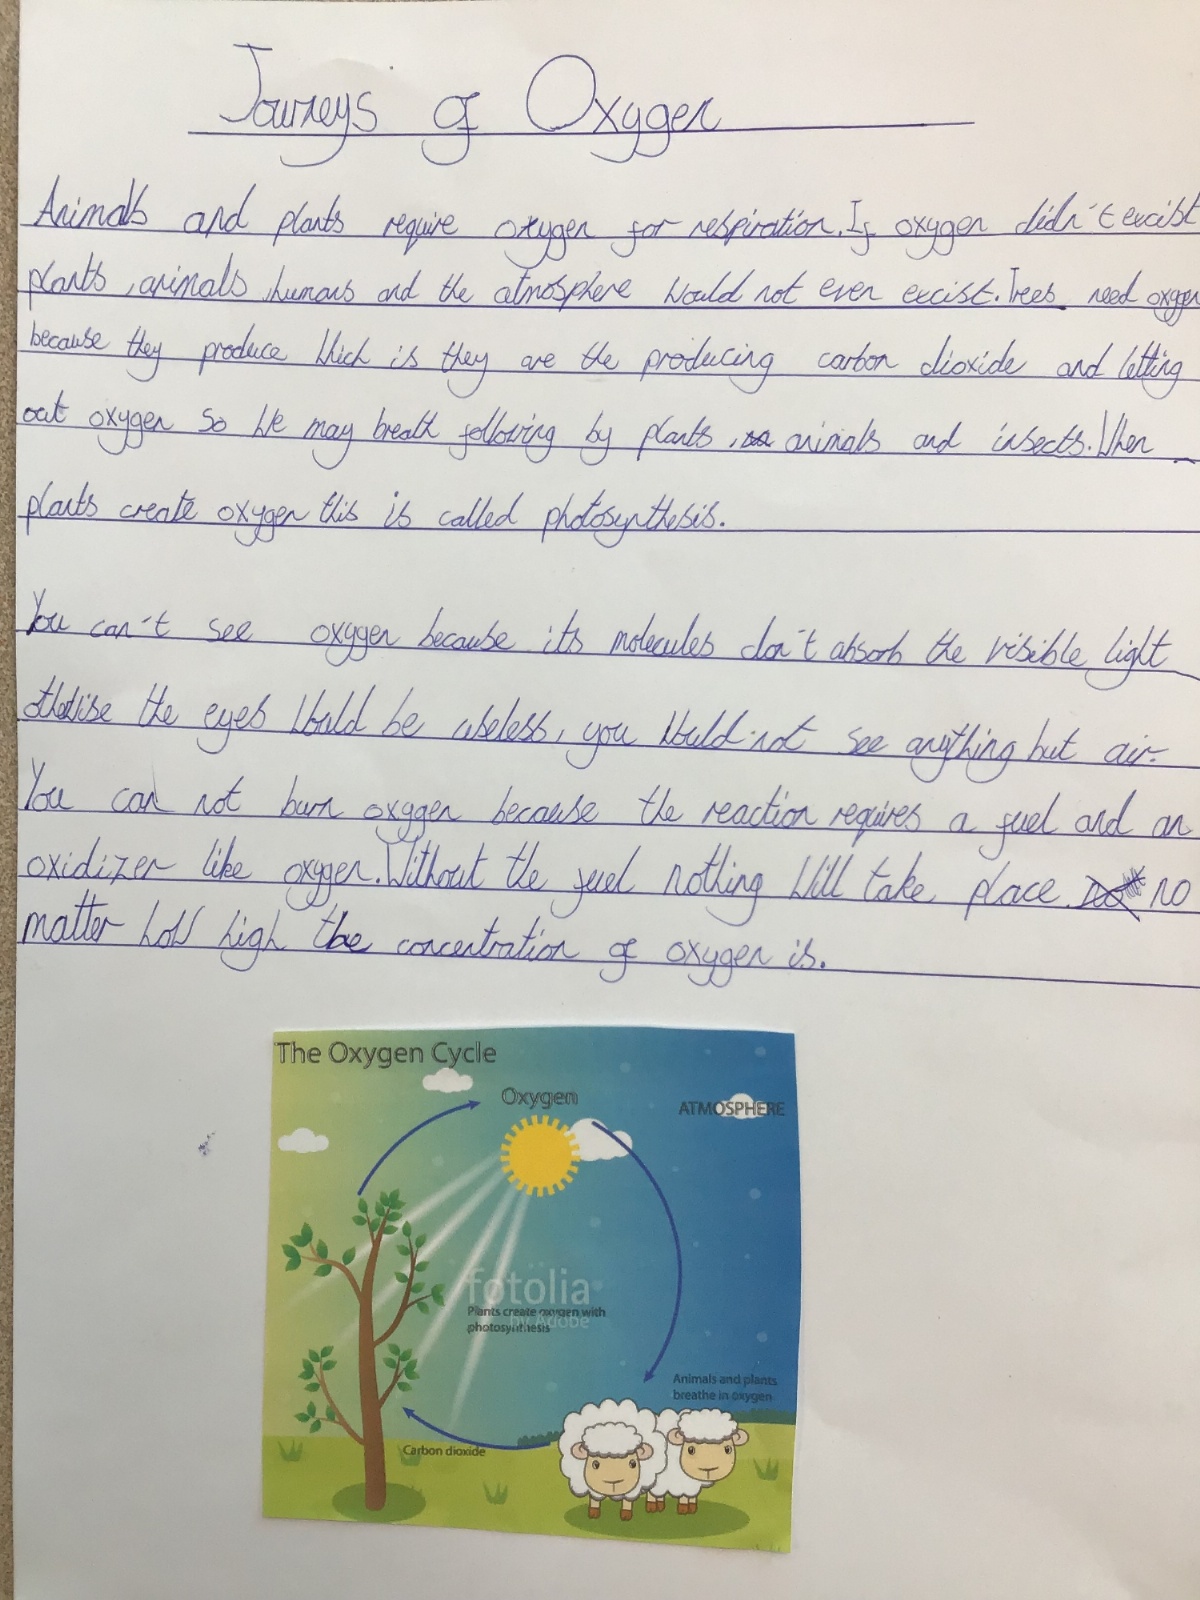 Journeys of Oxygen
Animals and plants require oxygen for respiration. If oxygen didn't excist
plants, animals, humans and the atmosphere would not even excist. Trees need oxygen
because they produce which is they are the producing carbon dioxide and letting
out oxygen so we may breath following by plants, animals and insects. When
plants create oxygen this is called photosynthesis.
You can't see oxygen because its molecules don't absorb the visible light
otherwise the eyes would be useless, you would not see anything but air.
You can not burn oxygen because the reaction requires a fuel and an
oxidizer like oxygen. Without the fuel nothing will take place no
matter how high the concentration of oxygen is.
The Oxygen Cycle
Oxygen
ATMOSPHERE
fotolia
by Adobe
Plants create oxygen with
photosynthesis
Animals and plants
breathe in oxygen
Carbon dioxide